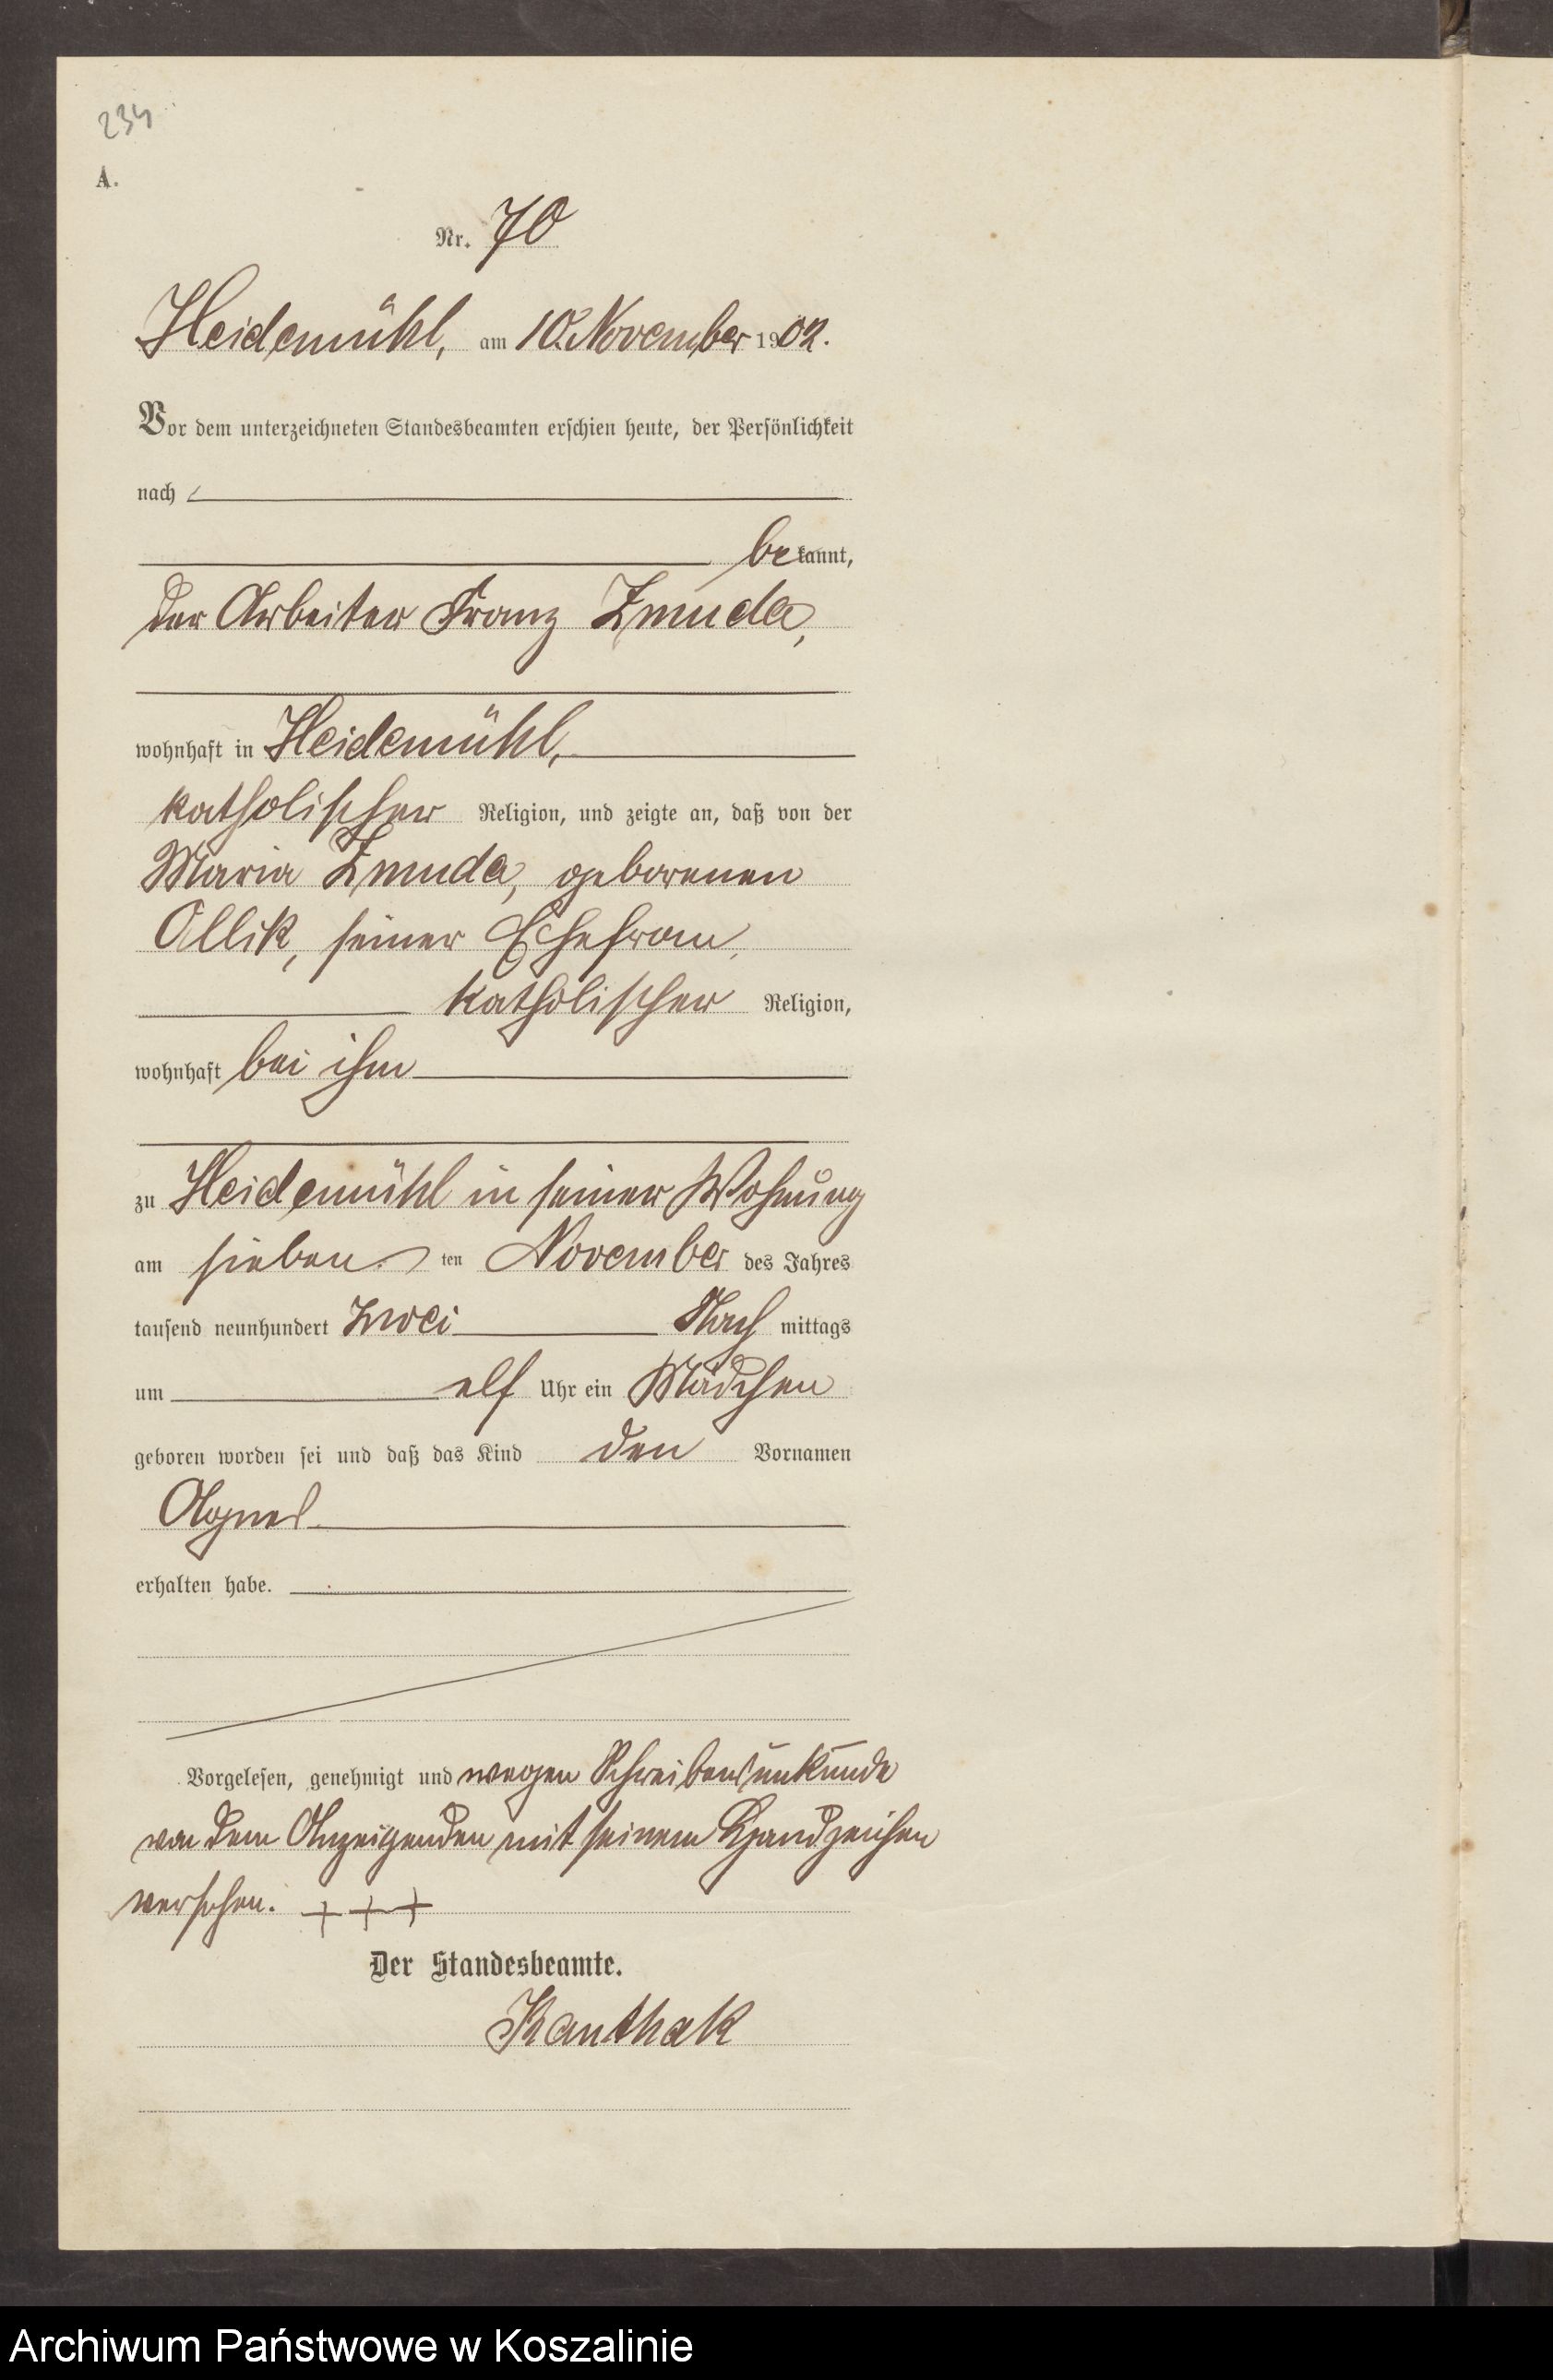 234
A.
Nr. 70
Heidemühl, am 10. November 1902.
Vor dem unterzeichneten Standesbeamten erschien heute, der Persönlichkeit
nach
bekannt,
der Arbeiter Franz Zmuda,
wohnhaft in Heidemühl,
katholischer Religion, und zeigte an, daß von der
Maria Zmuda, geborenen
Ollik, seiner Ehefrau,
katholischer Religion,
wohnhaft bei ihm
zu Heidemühl in seiner Wohnung
am sieben ten November des Jahres
tausend neunhundert zwei Nach mittags
um elf Uhr ein Mädchen
geboren worden sei und daß das Kind den Vornamen
Agnes
erhalten habe.
Vorgelesen, genehmigt und wegen Schreibensunkunde
von dem Anzeigenden mit seinem Handzeichen
versehen. +++
Der Standesbeamte.
Kanthak
Archiwum Państwowe w Koszalinie